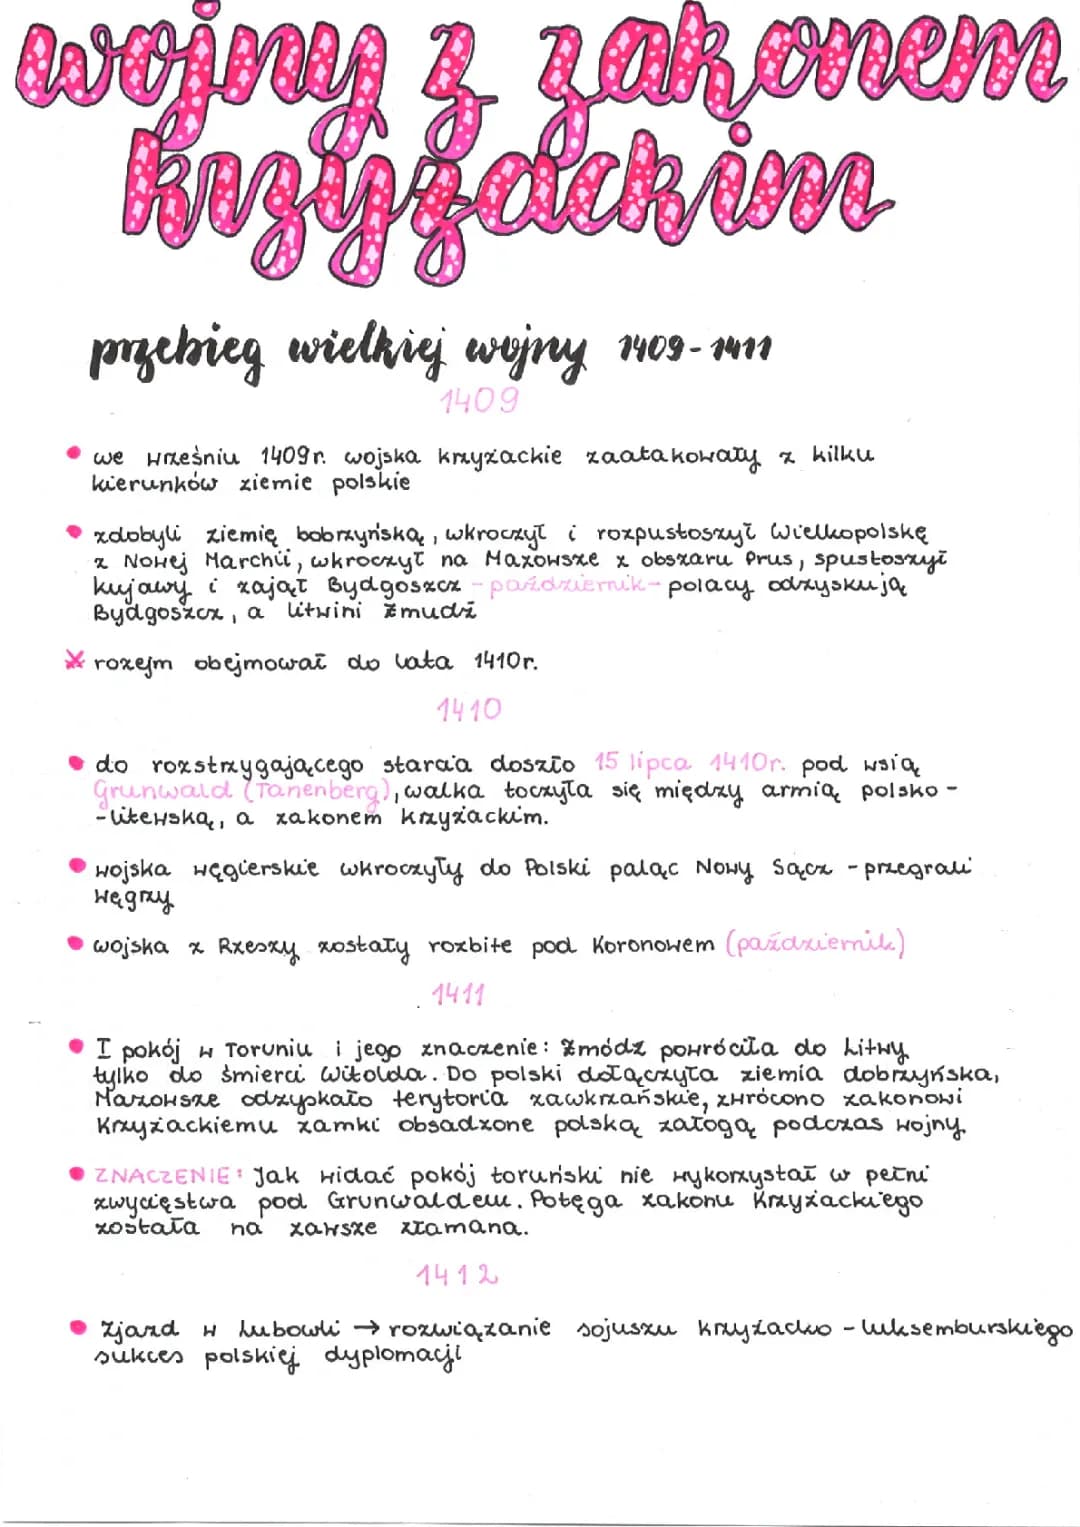 wojny z zakonem
krzyżackim
przebieg wielkiej wojny 1409-1411
1409
• we wrześniu 1409r. wojska krzyżackie zaatakowały z kilku
kierunków ziemie polskie
• zdobyli ziemię bobrzyńską, wkroczył i rozpustoszył Wielkopolskę
z Nowej Marchii, wkroczył na Mazowsze z obszaru Prus, spustoszył
kujawy i zajął Bydgoszcz - październik - polacy odzyskują
Bydgoszcz, a litwini Żmudź
× rozejm obejmował do lata 1410r.
1410
• do rozstrzygającego starcia doszło 15 lipca 1410r. pod wsią
Grunwald (Tanenberg), walka toczyła się między armią polsko -
- litewską, a zakonem krzyżackim.
• wojska węgierskie wkroczyły do Polski paląc Nowy Sącz - przegrali
węgrzy
• wojska z Rzeszy zostały rozbite pod Koronowem (październik)
1411
• I pokój w Toruniu i jego znaczenie: Żmódź powróciła do Litwy
tylko do śmierci Witolda. Do polski dołączyła ziemia dobrzyńska,
Mazowsze odzyskało terytoria zawkrzańskie, zwrócono zakonowi
Krzyżackiemu zamki obsadzone polską załogą podczas wojny.
• ZNACZENIE: Jak widać pokój toruński nie wykorzystał w pełni
zwycięstwa pod Grunwaldem. Potęga zakonu Krzyżackiego
została na zawsze złamana.
1412
• Zjazd w Lubowli → rozwiązanie sojuszu krzyżacko - luksemburskiego
sukces polskiej dyplomacji